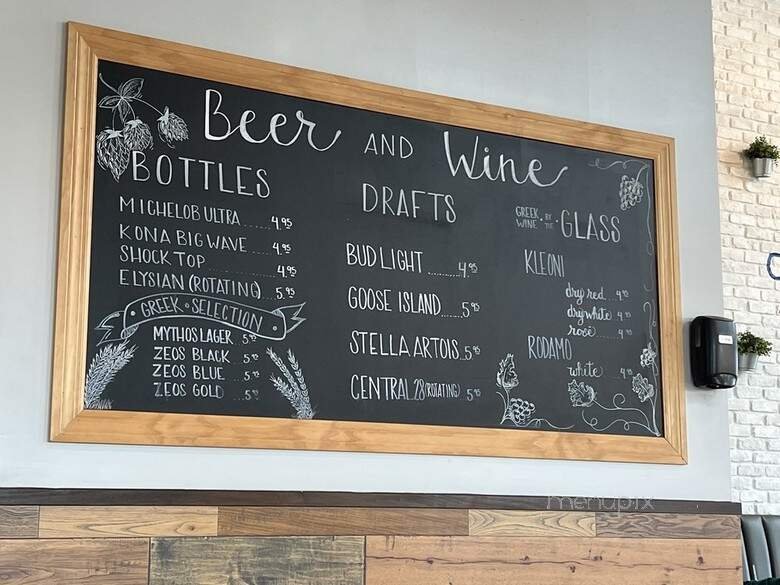 Beer AND Wine
BOTTLES
MICHELOB ULTRA 4.95
KONA BIG WAVE 4.95
SHOCK TOP 4.95
ELYSIAN (ROTATING) 5.95
GREEK • SELECTION
MYTHOS LAGER 5.95
ZEOS BLACK 5.95
ZEOS BLUE 5.95
ZEOS GOLD 5.95
DRAFTS
BUD LIGHT 4.95
GOOSE ISLAND 5.95
STELLA ARTOIS 5.95
CENTRAL 28 (ROTATING) 5.95
GREEK WINE BY THE GLASS
KLEONI
dry red 4.95
dry white 4.95
rosé 4.95
RODAMO
white 4.95
menupix